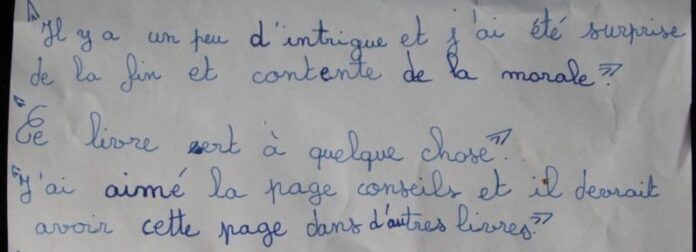 "Il y a un peu d'intrigue et j'ai été surprise
de la fin et contente de la morale".
"Ce livre sert à quelque chose".
"J'ai aimé la page conseils et il devrait
avoir cette page dans d'autres livres."